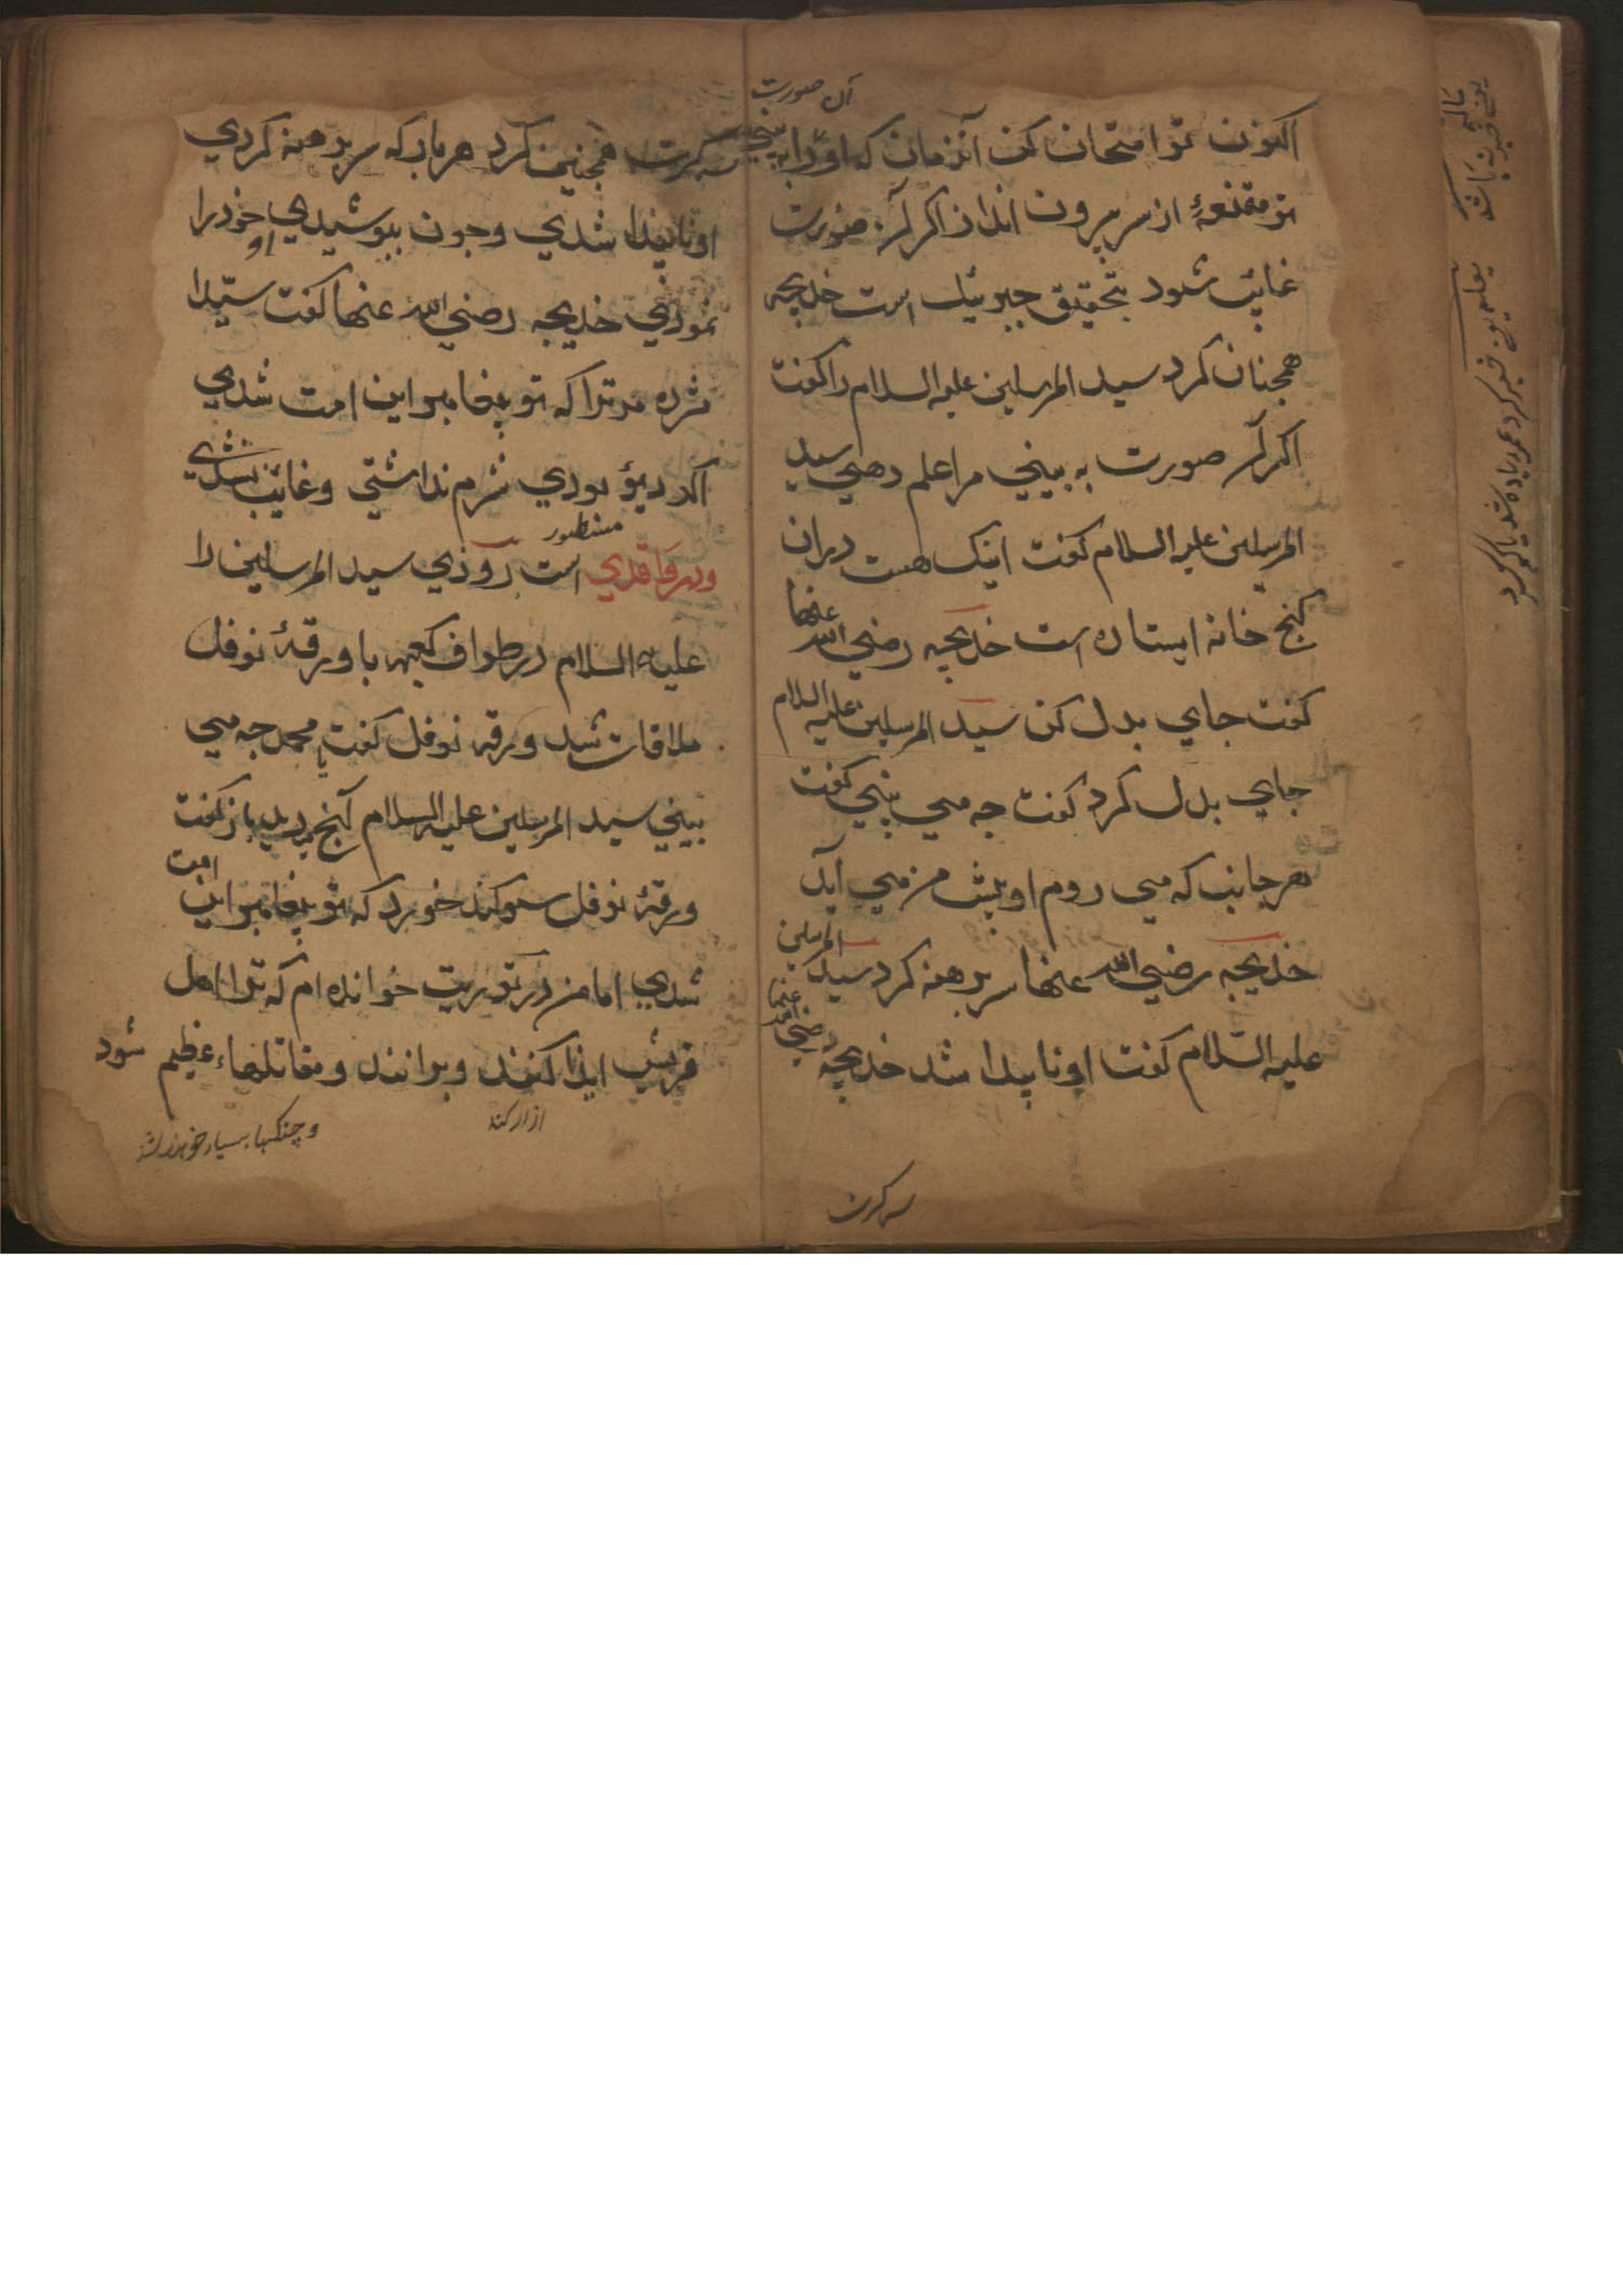 آن صورت
اکنون تو امتحان کن آنزمان که او را به بینی
تو مقنعهٔ از سر بیرون انداز اکر آن صورت
غائب شود بتحقیق جبرئیل است خدیجه
همجنان کرد سید المرسلین علیه السلام را کفت
اکر آن صورت به بینی مرا علم دهی سید
المرسلین علیه السلام کفت اینک هست دران
کنج خانه ایستاده است خدیجه رضی الله عنها
کفت جای بدل کن سید المرسلین علیه السلام
جای بدل کرد کفت جه می بینی کفت
هر جانب که می روم او پیش من می آید
خدیجه رضی الله عنها سر برهنه کرد سید المرسلین
علیه السّلام کفت او ناپیدا شد خدیجه رضی الله عنها
سه کرت
سه کرت همجنین کرد هر بار که سر برهنه کردی
او ناپیدا شدی و جون بپوشیدی او خود را
نمودی خدیجه رضی الله عنها کفت سیّد را
مژده مر ترا که تو پیغامبر این امت شدی
اکر دیو بودی شرم نداشتی و غائب نشدی
مسطور
ودر واقدی است روزی سید المرسلین را
علیه السلام در طواف کعبه با ورقهٔ نوفل
ملاقات شد ورقه نوفل کفت یا محمد جه می
بینی سید المرسلین علیه السلام آنج بدید باز کفت
ورقهٔ نوفل سوکند خورد که تو پیغامبر این امت
شدی اما من در توریت خوانده ام که ترا اهل
قریش ایذا کنند و برانند و مقاتلهاء عظیم شود
ازار کنند
و جنکها بسیار خواهد شد